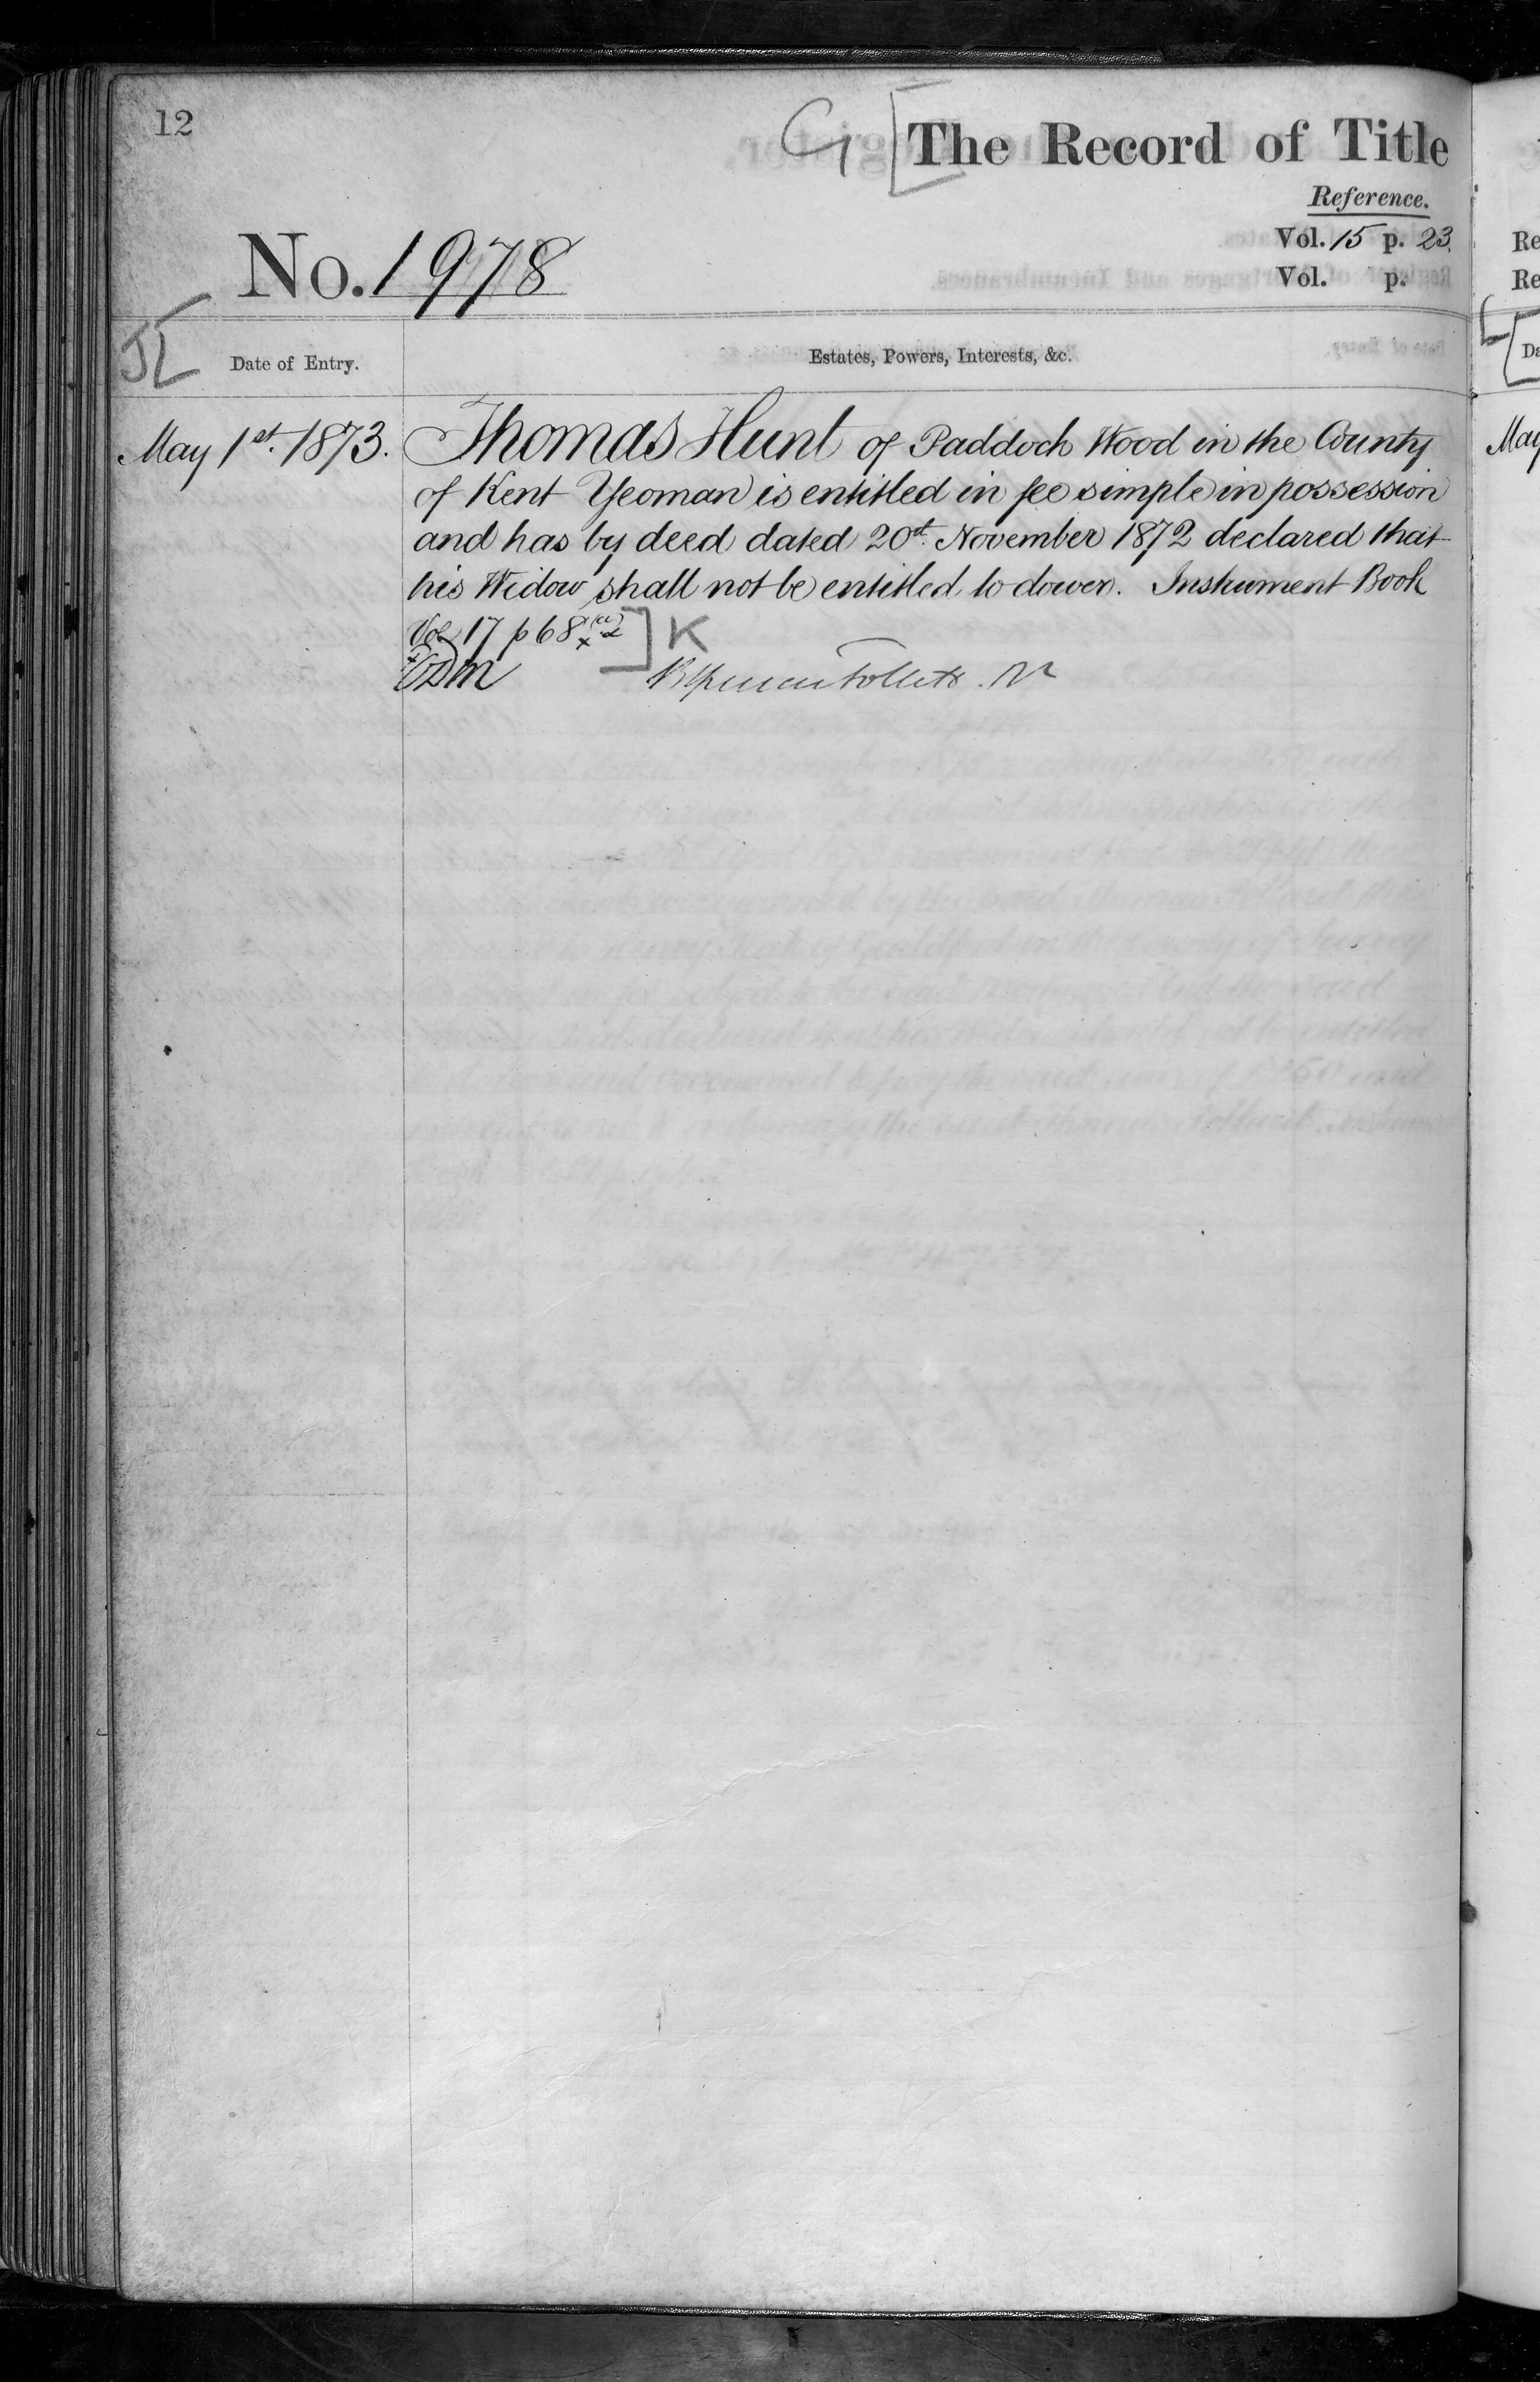 12
G [The Record of Title
Reference.
Vol. 15 p. 23.
No. 1978
Vol. p.
Date of Entry.
Estates, Powers, Interests, &c.
May 1st. 1873.
Thomas Hunt of Paddock Wood in the County
of Kent Yeoman is entitled in fee simple in possession
and has by deed dated 20th. November 1872 declared that
his Widow shall not be entitled to dower. Instrument Book
Vol 17 p 68 ] K
Re
Re
Da
May